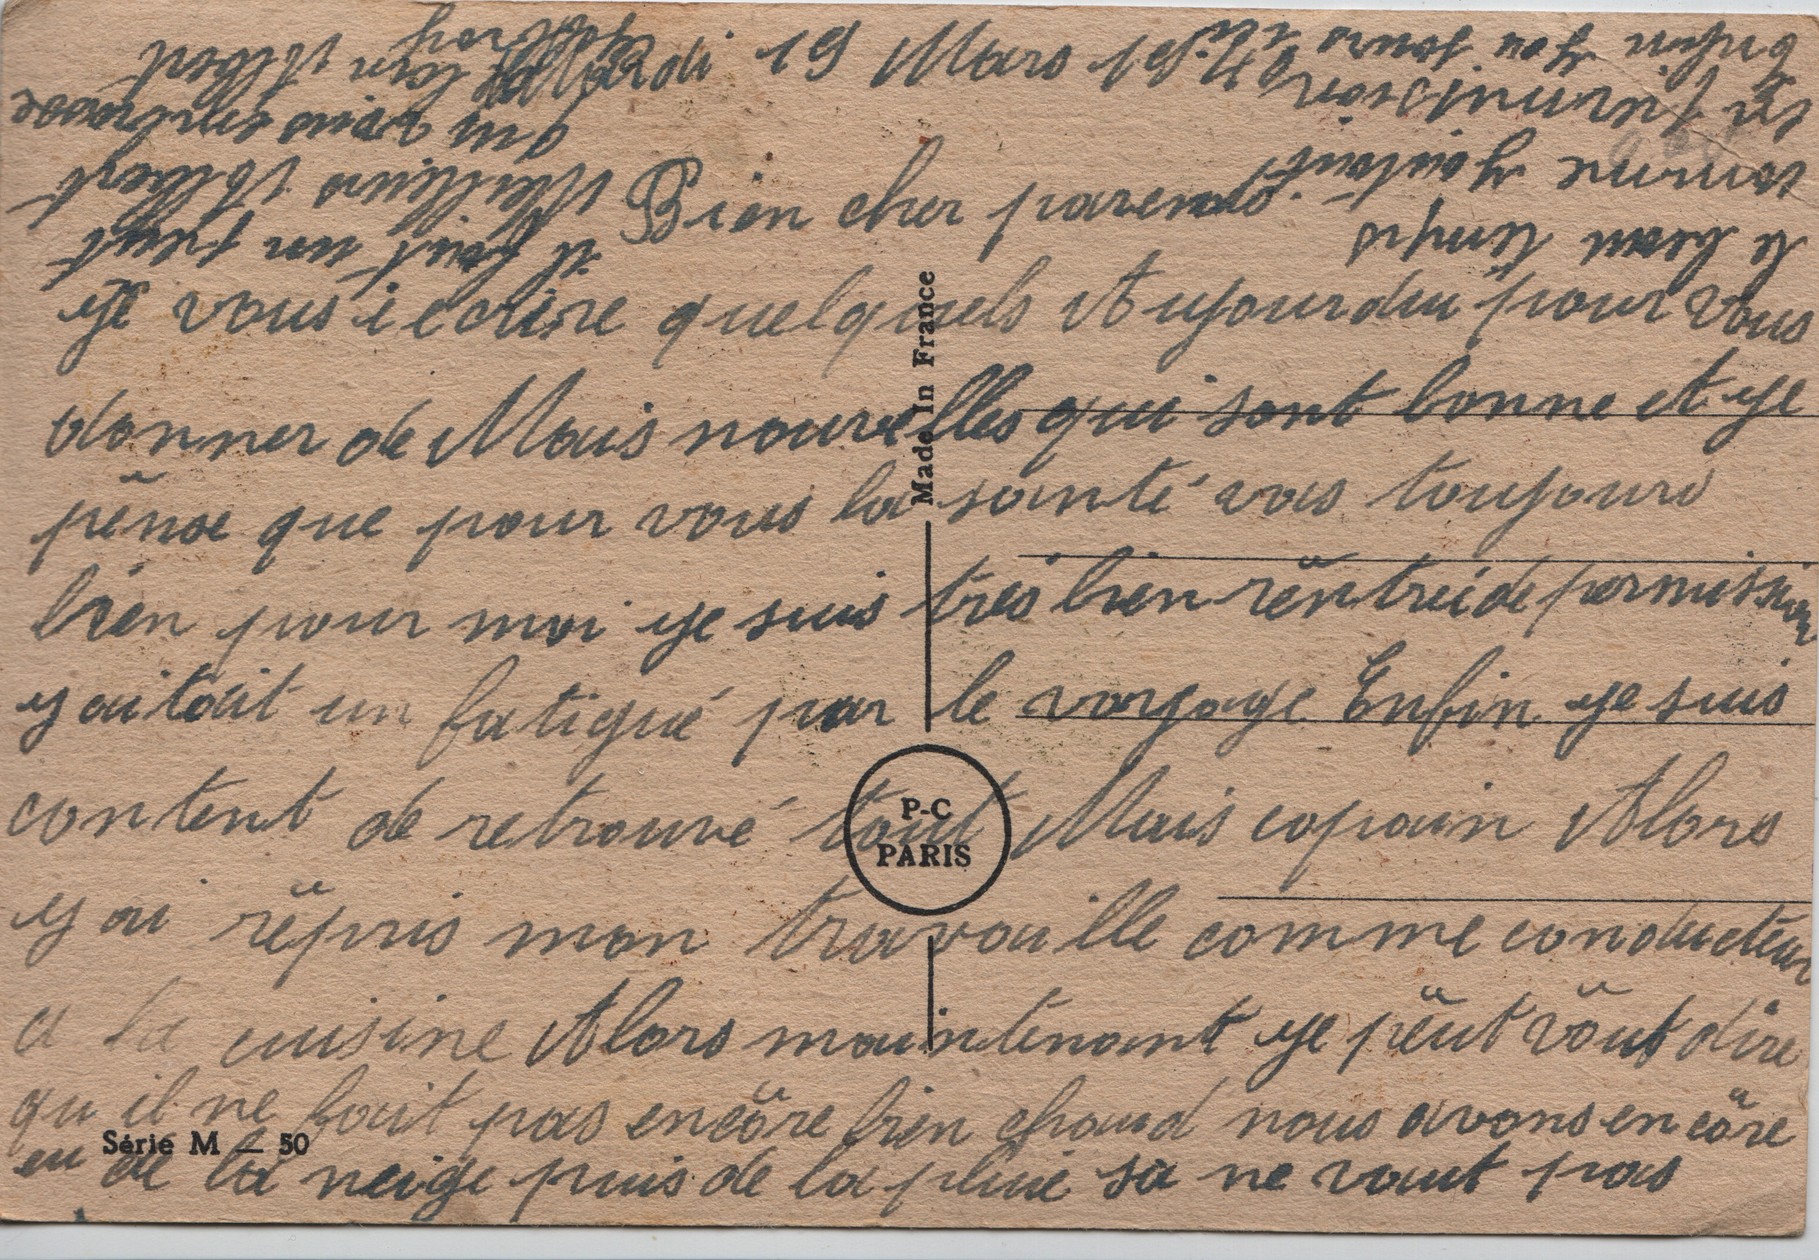 Mardi 19 Mars
Bien cher parents.
ye vous i ecrire quelquels Aujourdui pour vous
donner de Mais nouvelles qui sont bonne et ye
pense que pour vous la santé vas toujours
bien pour moi ye suis tres bien rentreí de permission
y ai tait un fatigué par le voyage Enfin ye suis
content de retrouvé tout Mais copain Alors
y ai repris mon travaille comme conducteur
a la cuisine Alors maintenant ye peut vout dire
qu il ne fait pas encore bien chaud nous avons encore
eu de la neige puis de la pluie sa ne vaut pas
le beau temps
comme
enfin
il faut
Meilleurs
Albert
Made In France
P-C
PARIS
Série M — 50